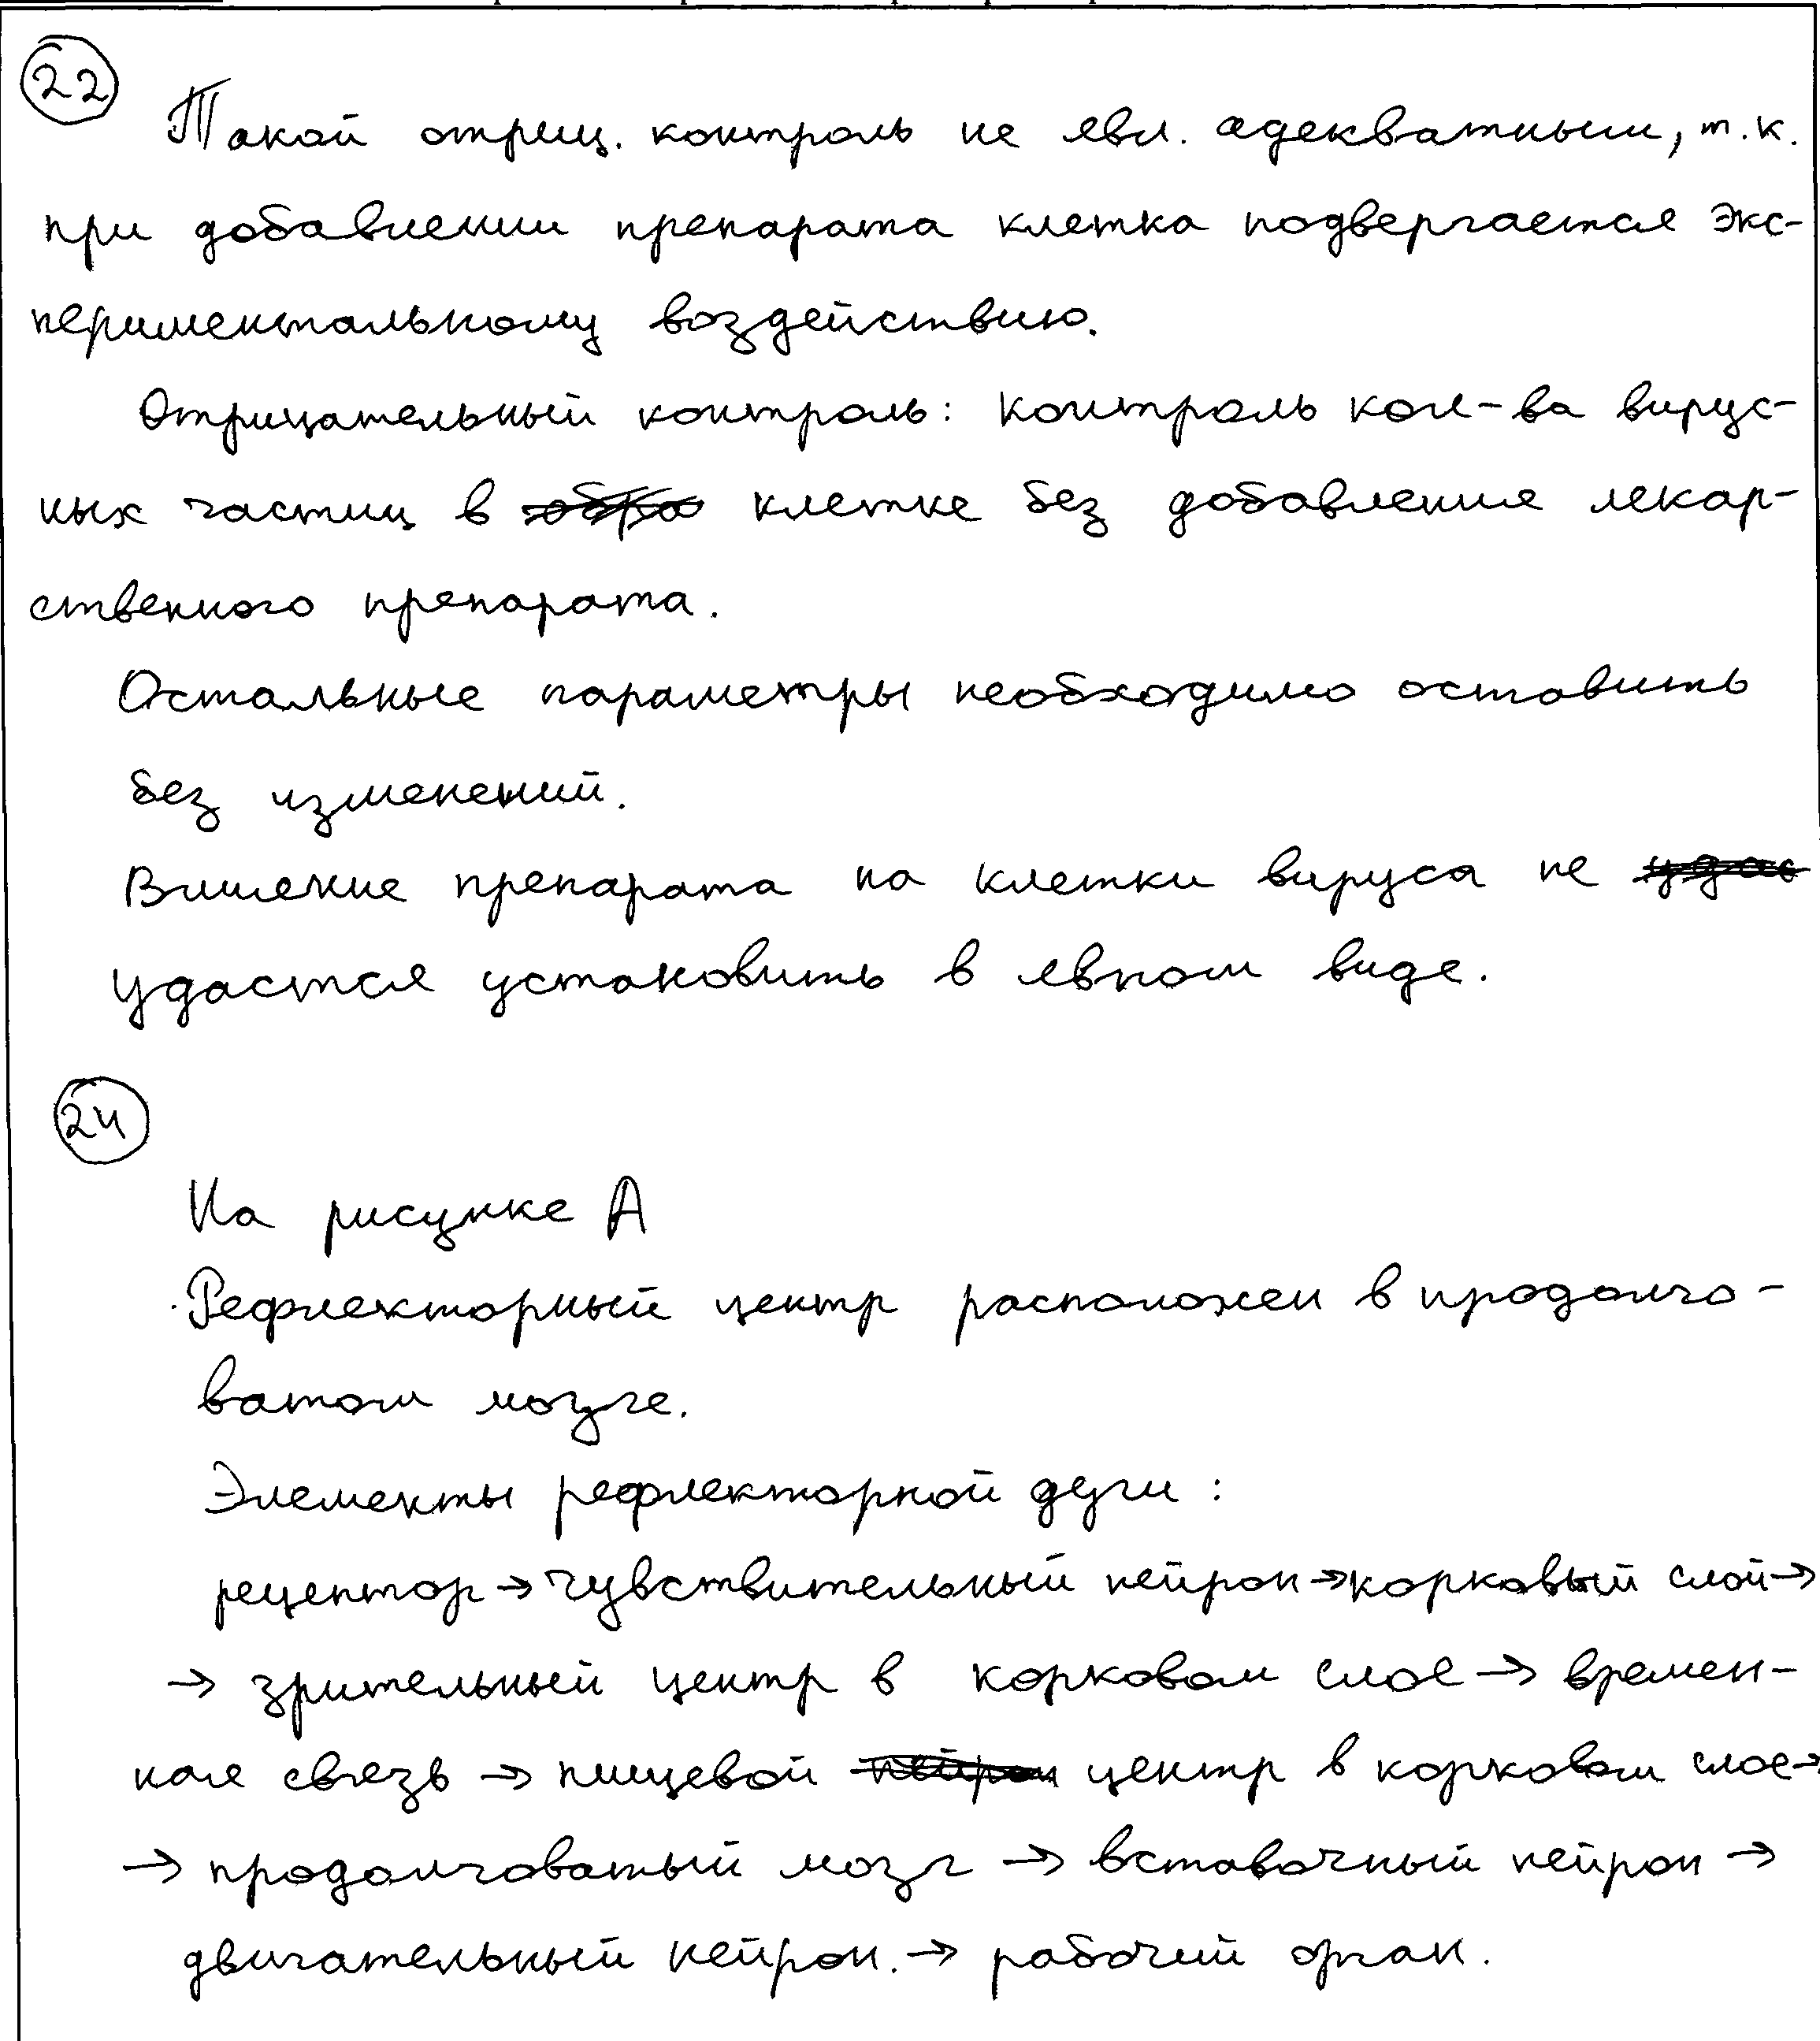 22
Такой отриц. контроль не явл. адекватным, т.к.
при добавлении препарата клетка подвергается экс-
периментальному воздействию.
Отрицательный контроль: контроль кол-ва вирус-
ных частиц в клетке без добавления лекар-
ственного препарата.
Остальные параметры необходимо оставить
без изменений.
Влияние препарата на клетки вируса не
удастся установить в явном виде.
24
На рисунке А
Рефлекторный центр расположен в продолго-
ватом мозге.
Элементы рефлекторной дуги:
рецептор → чувствительный нейрон → корковый слой →
→ зрительный центр в корковом слое → времен-
ная связь → пищевой центр в корковом слое →
→ продолговатый мозг → вставочный нейрон →
двигательный нейрон. → рабочий орган.